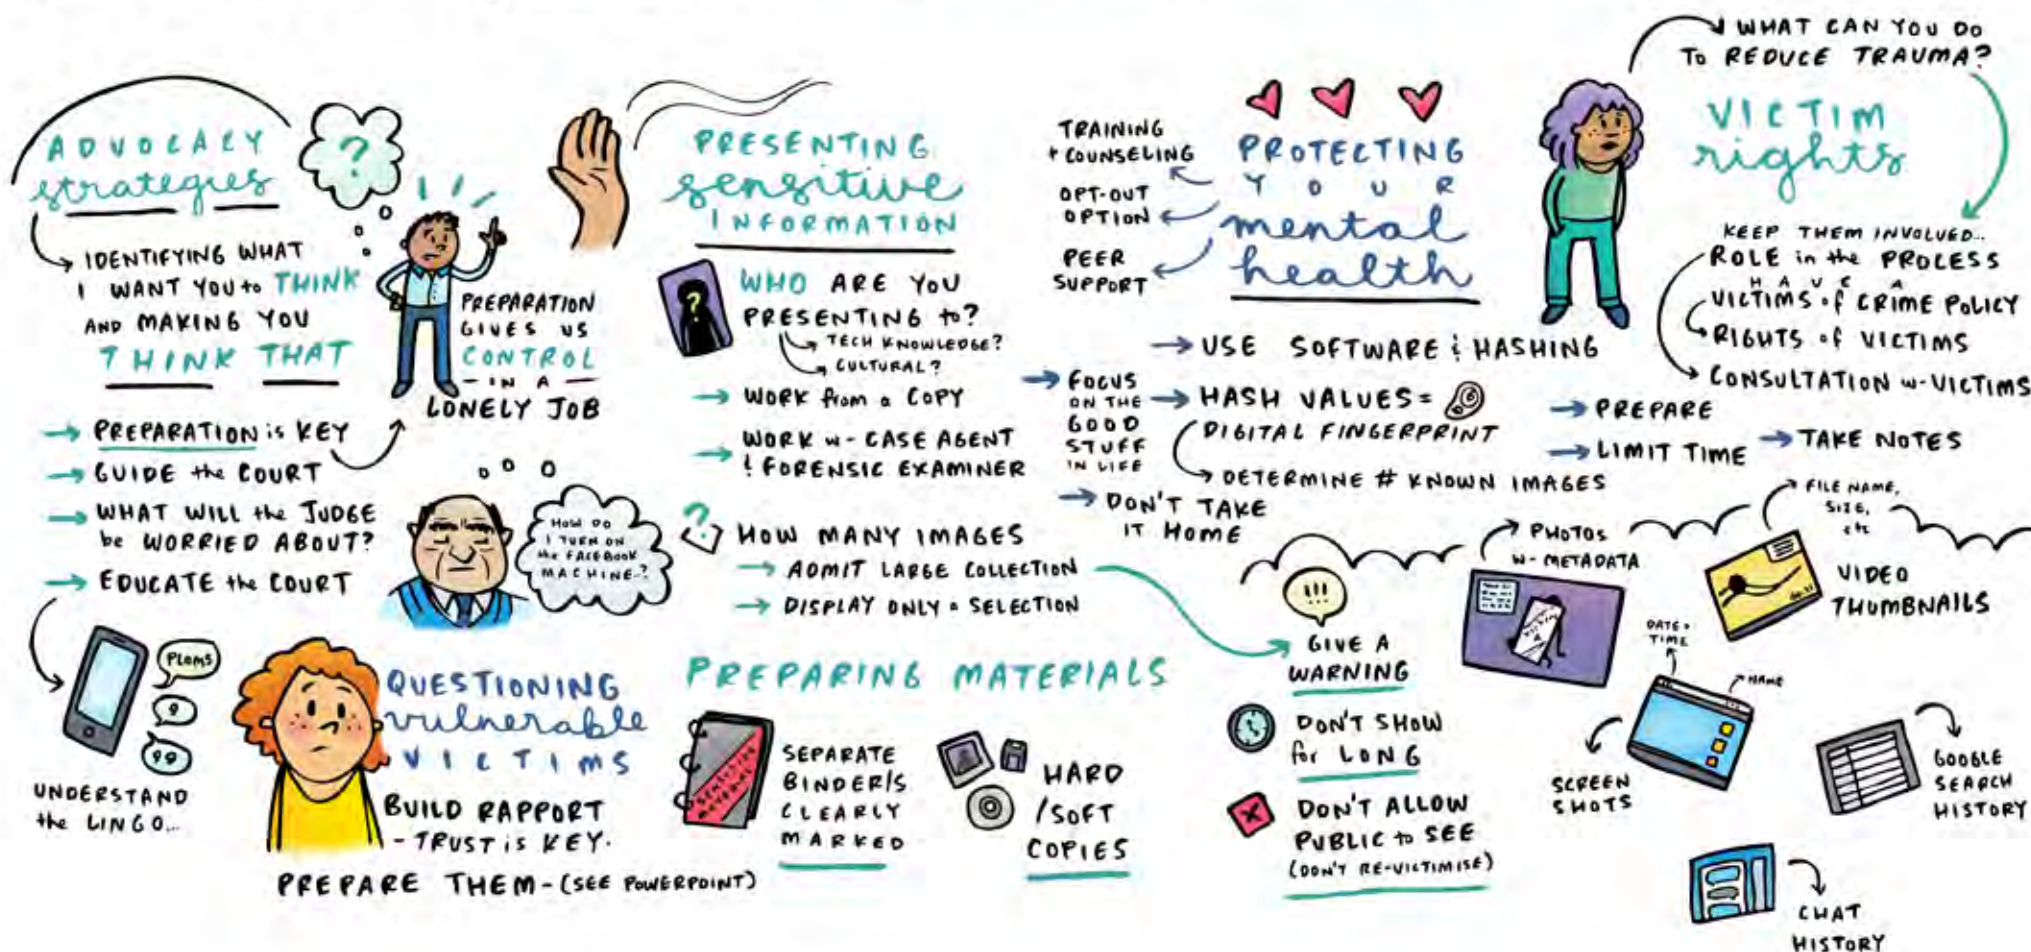 ADVOCACY
strategies
IDENTIFYING WHAT
I WANT YOU to THINK
AND MAKING YOU
THINK THAT
?
PREPARATION
GIVES US
CONTROL
- IN A -
LONELY JOB
PREPARATION is KEY
GUIDE the COURT
WHAT WILL the JUDGE
be WORRIED ABOUT?
EDUCATE the COURT
HOW DO
I TURN ON
the FACEBOOK
MACHINE..?
UNDERSTAND
the LINGO...
QUESTIONING
vulnerable
VICTIMS
BUILD RAPPORT
- TRUST is KEY.
PREPARE THEM - (SEE POWERPOINT)
PRESENTING
sensitive
INFORMATION
?
WHO ARE YOU
PRESENTING to?
TECH KNOWLEDGE?
CULTURAL?
WORK from a COPY
WORK w- CASE AGENT
& FORENSIC EXAMINER
?
HOW MANY IMAGES
ADMIT LARGE COLLECTION
DISPLAY ONLY a SELECTION
PREPARING MATERIALS
SEPARATE
BINDER/S
CLEARLY
MARKED
HARD
/SOFT
COPIES
!!!
GIVE A
WARNING
DON'T SHOW
for LONG
DON'T ALLOW
PUBLIC to SEE
(DON'T RE-VICTIMISE)
TRAINING
+ COUNSELING
OPT-OUT
OPTION
PEER
SUPPORT
PROTECTING
YOUR
mental
health
FOCUS
ON THE
GOOD
STUFF
IN LIFE
DON'T TAKE
IT HOME
USE SOFTWARE & HASHING
HASH VALUES =
DIGITAL FINGERPRINT
DETERMINE # KNOWN IMAGES
PREPARE
LIMIT TIME
TAKE NOTES
WHAT CAN YOU DO
TO REDUCE TRAUMA?
VICTIM
rights
KEEP THEM INVOLVED..
ROLE in the PROCESS
HAVE A
VICTIMS of CRIME POLICY
RIGHTS of VICTIMS
CONSULTATION w- VICTIMS
PHOTOS
W- METADATA
FILE NAME,
SIZE,
etc
VIDEO
THUMBNAILS
DATE +
TIME
NAME
SCREEN
SHOTS
GOOGLE
SEARCH
HISTORY
CHAT
HISTORY